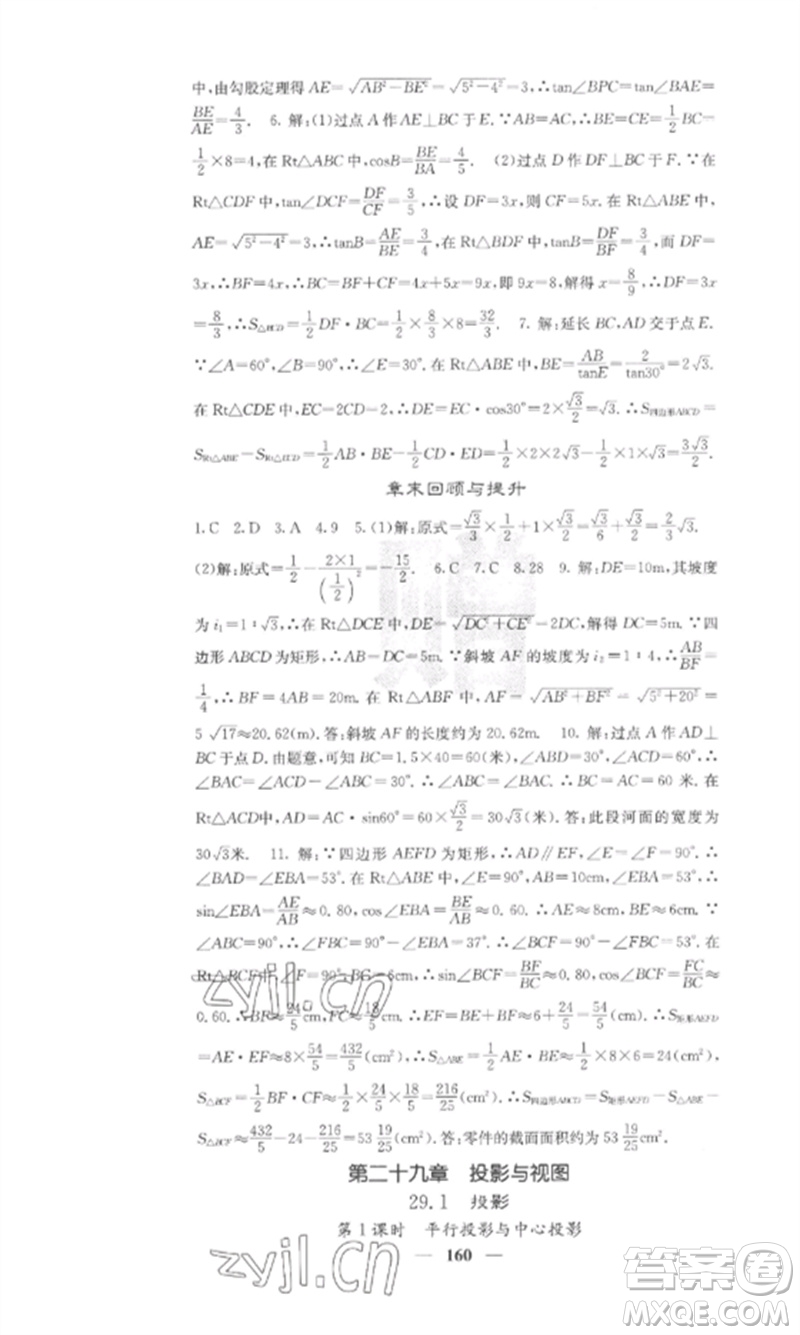 中,由勾股定理得 AE=√(AB²-BE²)=√(5²-4²)=3,∴tan∠BPC=tan∠BAE=
BE/AE=4/3. 6.解:(1)过点 A 作 AE⊥BC 于 E.∵AB=AC,∴BE=CE=1/2 BC=
1/2×8=4,在 Rt△ABC 中,cosB=BE/BA=4/5. (2)过点 D 作 DF⊥BC 于 F.∵在
Rt△CDF 中,tan∠DCF=DF/CF=3/5,∴设 DF=3x,则 CF=5x.在 Rt△ABE 中,
AE=√(5²-4²)=3,∴tanB=AE/BE=3/4,在 Rt△BDF 中,tanB=DF/BF=3/4,而 DF=
3x,∴BF=4x,∴BC=BF+CF=4x+5x=9x,即 9x=8,解得 x=8/9,∴DF=3x
=8/3,∴S△BCD=1/2 DF·BC=1/2×8/3×8=32/3. 7.解:延长 BC,AD 交于点 E.
∵∠A=60°,∠B=90°,∴∠E=30°.在 Rt△ABE 中,BE=AB/tanE=2/tan30°=2√3.
在 Rt△CDE 中,EC=2CD=2,∴DE=EC·cos30°=2×√3/2=√3.∴S四边形ABCD=
S Rt△ABE-S Rt△ECD=1/2 AB·BE-1/2 CD·ED=1/2×2×2√3-1/2×1×√3=3√3/2.
章末回顾与提升
1.C 2.D 3.A 4.9 5.(1)解:原式=√3/3×1/2+1×√3/2=√3/6+√3/2=2/3√3.
(2)解:原式=1/2-2×1/(1/2)²=-15/2. 6.C 7.C 8.28 9.解:∵DE=10m,其坡度
为 i₁=1∶√3,∴在 Rt△DCE 中,DE=√(DC²+CE²)=2DC,解得 DC=5m.∵四
边形 ABCD 为矩形,∴AB=CD=5m.∵斜坡 AF 的坡度为 i₂=1∶4,∴AB/BF=
1/4,∴BF=4AB=20m.在 Rt△ABF 中,AF=√(AB²+BF²)=√(5²+20²)=
5√17≈20.62(m).答:斜坡 AF 的长度约为 20.62m. 10.解:过点 A 作 AD⊥
BC 于点 D.由题意,可知 BC=1.5×40=60(米),∠ABD=30°,∠ACD=60°.∴
∠BAC=∠ACD-∠ABC=30°.∴∠ABC=∠BAC.∴AC=BC=60 米.在
Rt△ACD中,AD=AC·sin60°=60×√3/2=30√3(米).答:此段河面的宽度为
30√3米. 11.解:∵四边形 AEFD 为矩形,∴AD∥EF,∠E=∠F=90°.∴
∠BAD=∠EBA=53°.在 Rt△ABE 中,∠E=90°,AB=10cm,∠EBA=53°.∴
sin∠EBA=AE/AB≈0.80,cos∠EBA=BE/AB≈0.60.∴AE≈8cm,BE≈6cm.∵
∠ABC=90°,∴∠FBC=90°-∠EBA=37°.∴∠BCF=90°-∠FBC=53°.在
Rt△BCF 中,∠F=90°,BC=6cm,∴sin∠BCF=BF/BC≈0.80,cos∠BCF=FC/BC≈
0.60.∴BF≈24/5cm,FC≈18/5cm.∴EF=BE+BF≈6+24/5=54/5(cm).∴S矩形AEFD
=AE·EF≈8×54/5=432/5(cm²).∴S△ABE=1/2 AE·BE≈1/2×8×6=24(cm²).
S△BCF=1/2 BF·CF≈1/2×24/5×18/5=216/25(cm²).∴S四边形ABCD=S矩形AEFD-S△ABE-
S△BCF≈432/5-24-216/25=53 19/25(cm²).答:零件的截面面积约为 53 19/25cm².
第二十九章 投影与视图
29.1 投影
第1课时 平行投影与中心投影
— 160 —
zyjl.cn
zyjl.cn
答案圈
MXQE.COM